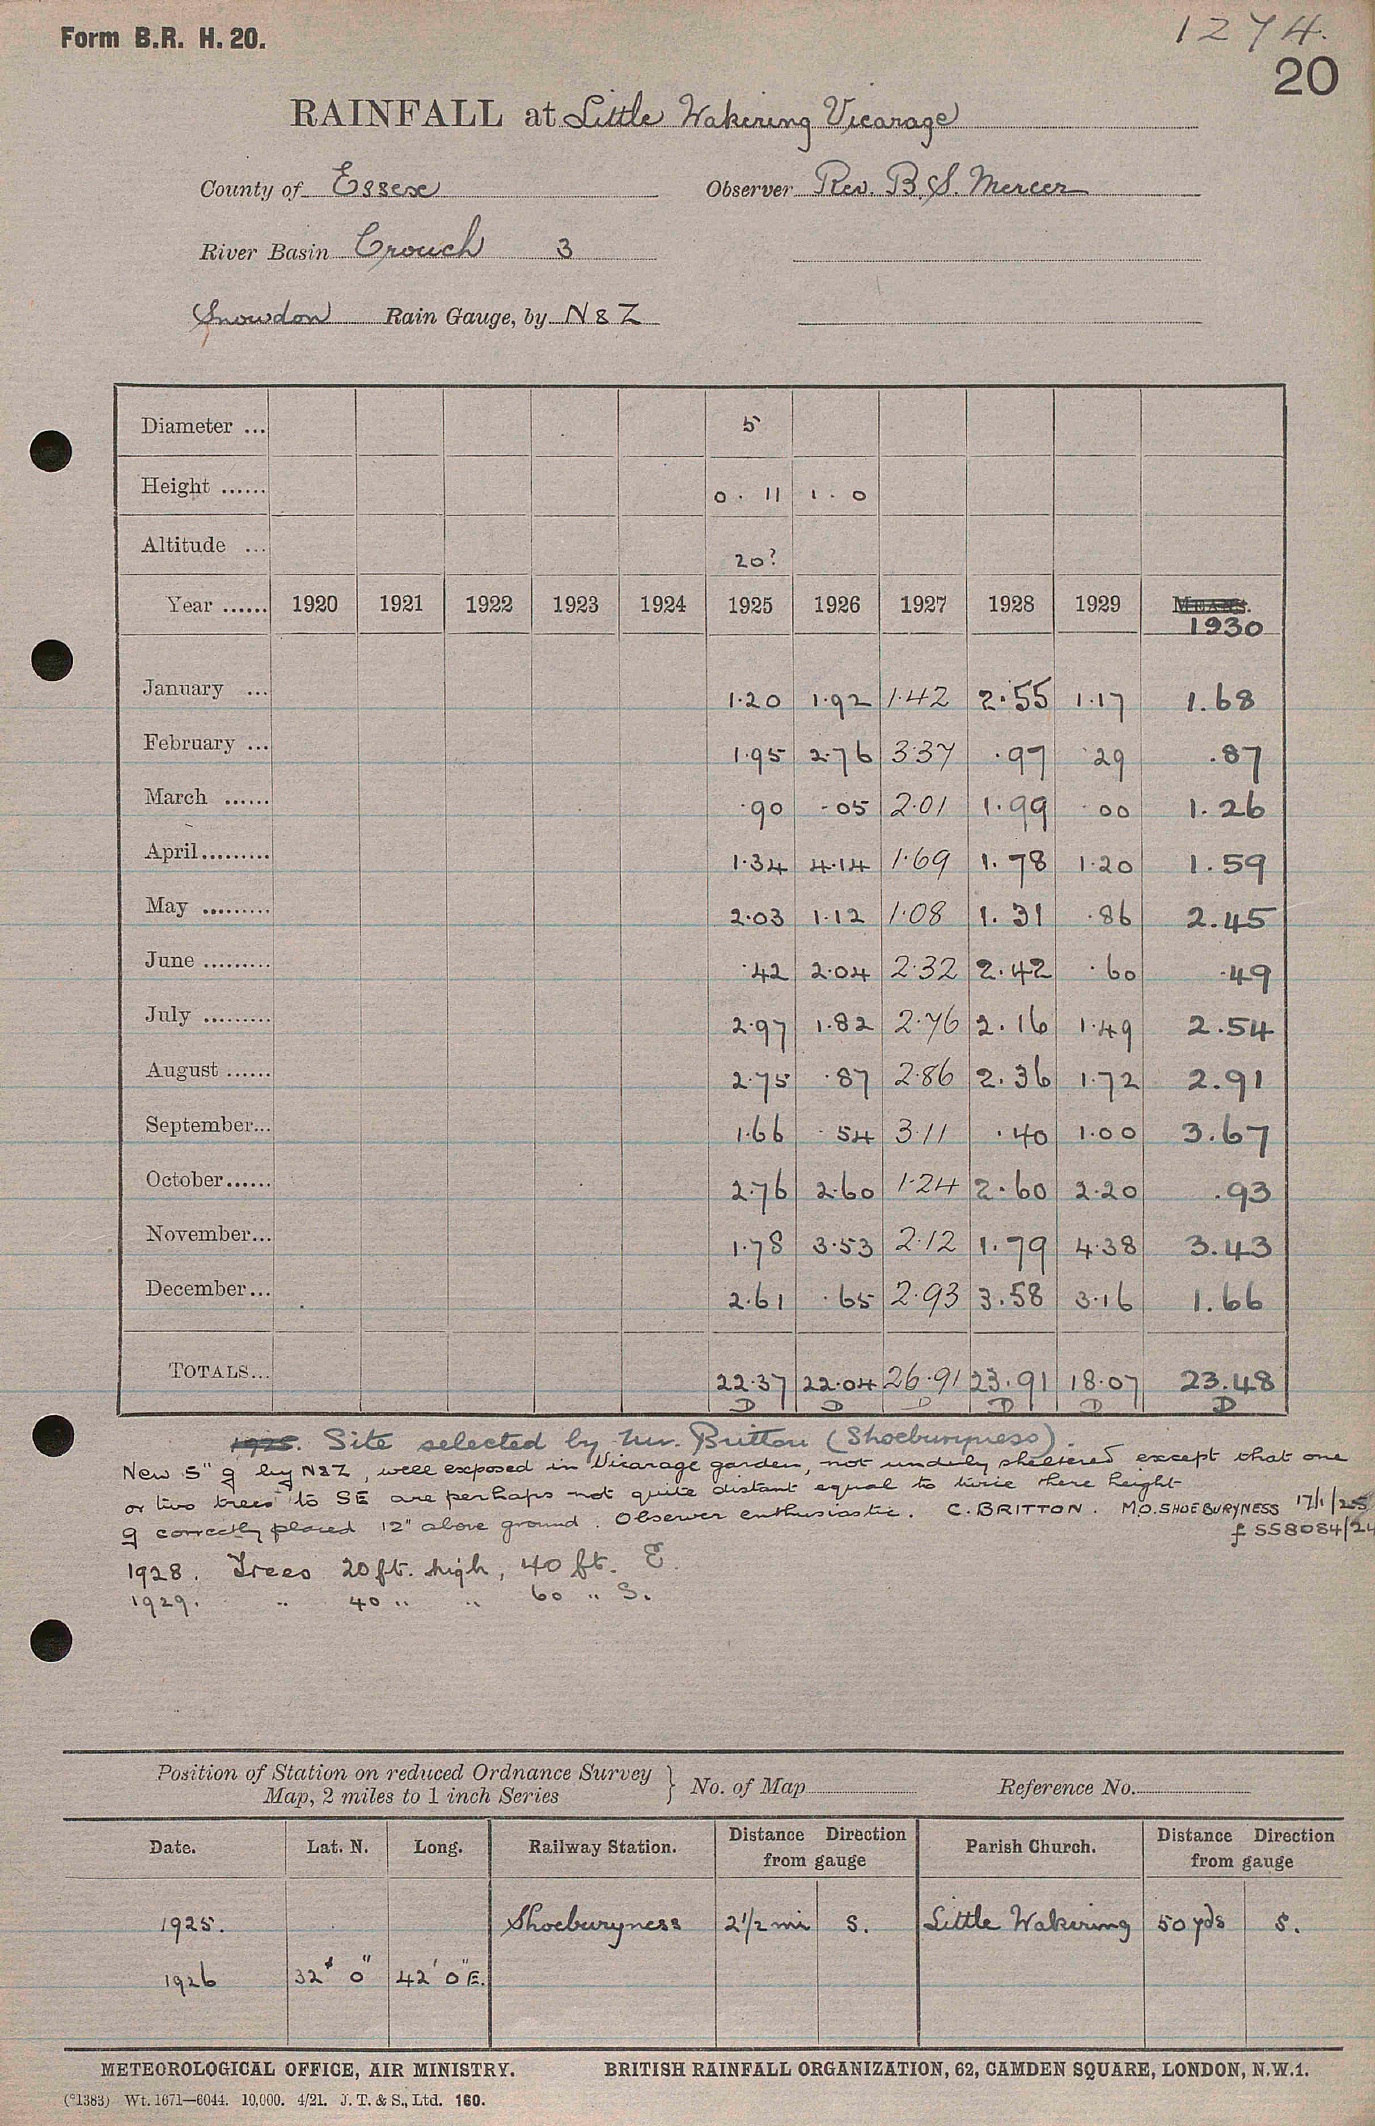 Form B.R. H. 20.
1274.
20
RAINFALL at Little Wakering Vicarage
County of Essex Observer Rev. B. S. Mercer
River Basin Crouch 3
Snowdon Rain Gauge, by N & Z
Diameter ... 5
Height ...... 0 . 11 1 . 0
Altitude ... 20?
Year ...... 1920 1921 1922 1923 1924 1925 1926 1927 1928 1929 1930
January ... 1.20 1.92 1.42 2.55 1.17 1.68
February ... 1.95 2.76 3.37 .97 .29 .87
March ...... .90 .05 2.01 1.99 .00 1.26
April......... 1.34 4.14 1.69 1.78 1.20 1.59
May ......... 2.03 1.12 1.08 1.31 .86 2.45
June ......... .42 2.04 2.32 2.42 .60 .49
July ......... 2.97 1.82 2.76 2.16 1.49 2.54
August ...... 2.75 .87 2.86 2.36 1.72 2.91
September... 1.66 .54 3.11 .40 1.00 3.67
October...... 2.76 2.60 1.24 2.60 2.20 .93
November... 1.78 3.53 2.12 1.79 4.38 3.43
December... 2.61 .65 2.93 3.58 3.16 1.66
TOTALS... 22.37 22.04 26.91 23.91 18.07 23.48
D D D D D D
1925. Site selected by Mr. Britton (Shoeburyness).
New 5" g by N & Z, well exposed in Vicarage garden, not unduly sheltered except that one
or two trees to SE are perhaps not quite distant equal to twice there height
g correctly placed 12" above ground. Observer enthusiastic. C. BRITTON. M.O. SHOEBURYNESS 17/1/25
f SS8084/24
1928. Trees 20 ft. high, 40 ft. E.
1929. " 40 " " 60 " S.
Position of Station on reduced Ordnance Survey
Map, 2 miles to 1 inch Series } No. of Map Reference No.
Date. Lat. N. Long. Railway Station. Distance Direction from gauge Parish Church. Distance Direction from gauge
1925. Shoeburyness 2 1/2 mi S. Little Wakering 50 yds S.
1926 32' 0" 42' 0" E.
METEOROLOGICAL OFFICE, AIR MINISTRY. BRITISH RAINFALL ORGANIZATION, 62, CAMDEN SQUARE, LONDON, N.W.1.
(*1383) Wt. 1671—6044. 10,000. 4/21. J. T. & S., Ltd. 160.